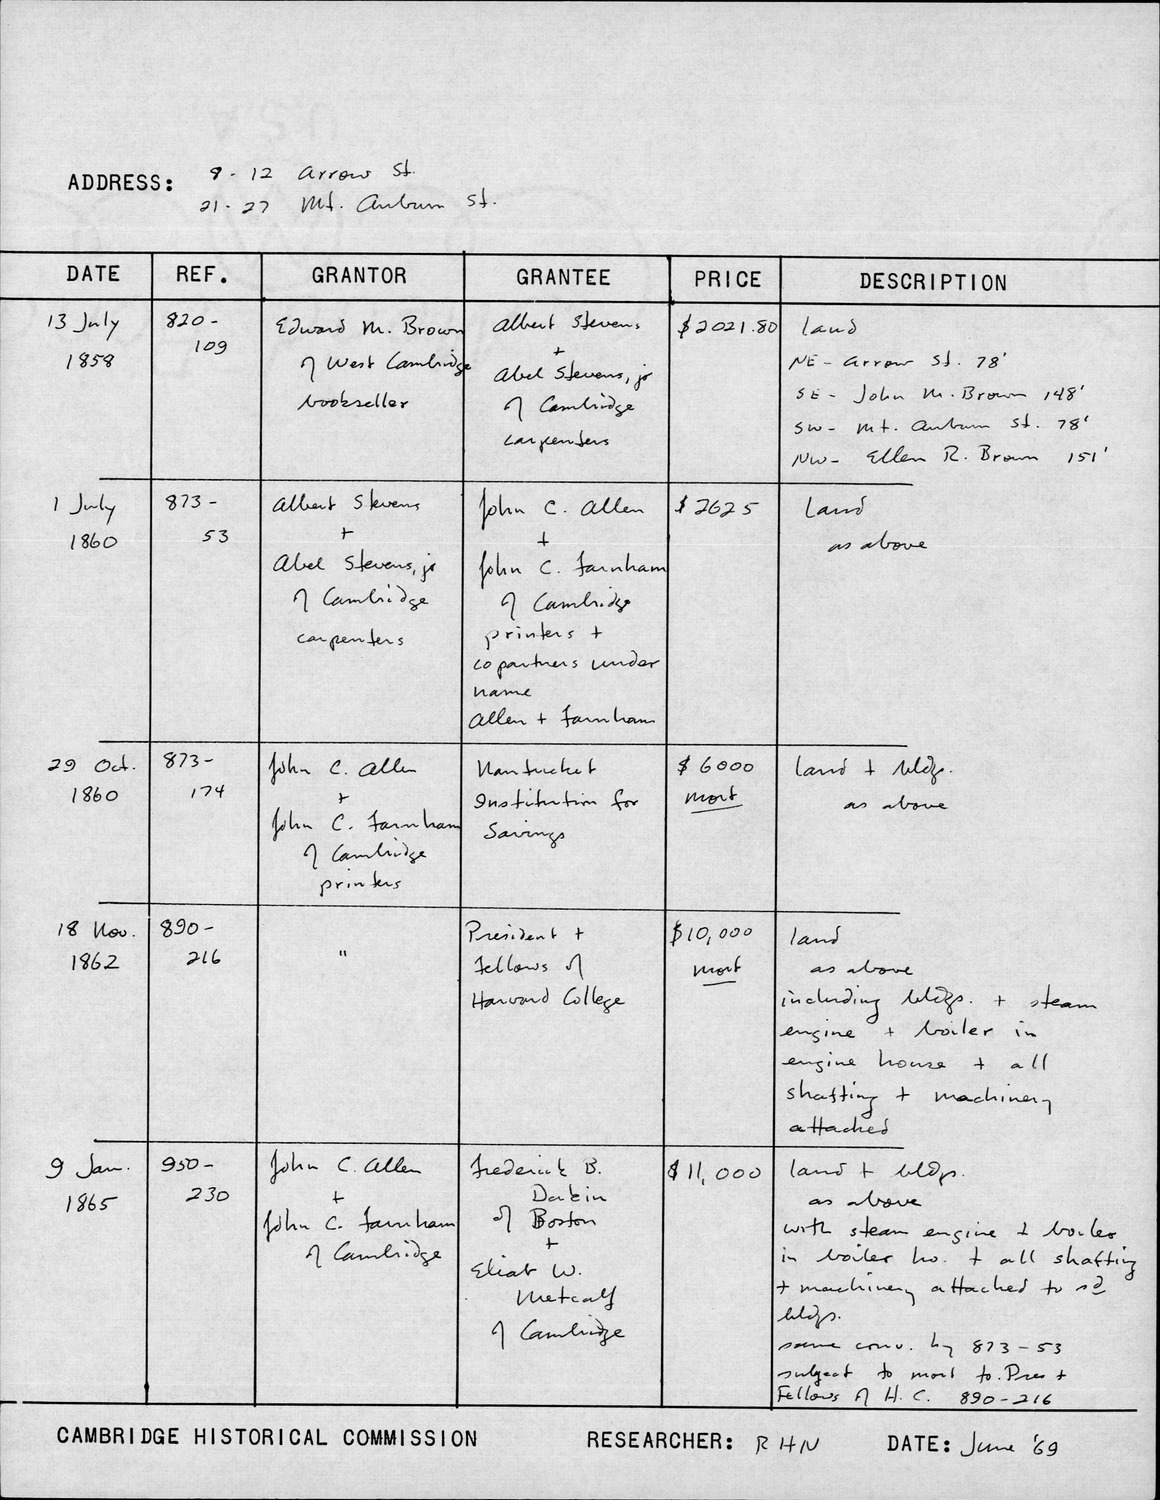 ADDRESS: 9 - 12 Arrow St.
21 - 27 Mt. Auburn St.
DATE REF. GRANTOR GRANTEE PRICE DESCRIPTION
13 July
1858
820 -
109
Edward M. Brown
of West Cambridge
bookseller
Albert Stevens
+
Abel Stevens, jr
of Cambridge
carpenters
$2021.80
land
NE - Arrow St. 78'
SE - John M. Brown 148'
SW - Mt. Auburn St. 78'
NW - Ellen R. Brown 151'
1 July
1860
873 -
53
Albert Stevens
+
Abel Stevens, jr
of Cambridge
carpenters
John C. Allen
+
John C. Farnham
of Cambridge
printers +
copartners under
name
Allen + Farnham
$2625
land
as above
29 Oct.
1860
873 -
174
John C. Allen
+
John C. Farnham
of Cambridge
printers
Nantucket
Institution for
Savings
$6000
mort
land + bldgs.
as above
18 Nov.
1862
890 -
216
"
President +
Fellows of
Harvard College
$10,000
mort
land
as above
including bldgs. + steam
engine + boiler in
engine house + all
shafting + machinery
attached
9 Jan.
1865
950 -
230
John C. Allen
+
John C. Farnham
of Cambridge
Frederick B.
Dakin
of Boston
+
Eliab W.
Metcalf
of Cambridge
$11,000
land + bldgs.
as above
with steam engine + boiler
in boiler ho. + all shafting
+ machinery attached to sd
bldgs.
same conv. by 873-53
subject to mort to Pres +
Fellows of H. C. 890-216
CAMBRIDGE HISTORICAL COMMISSION RESEARCHER: RHN DATE: June '69